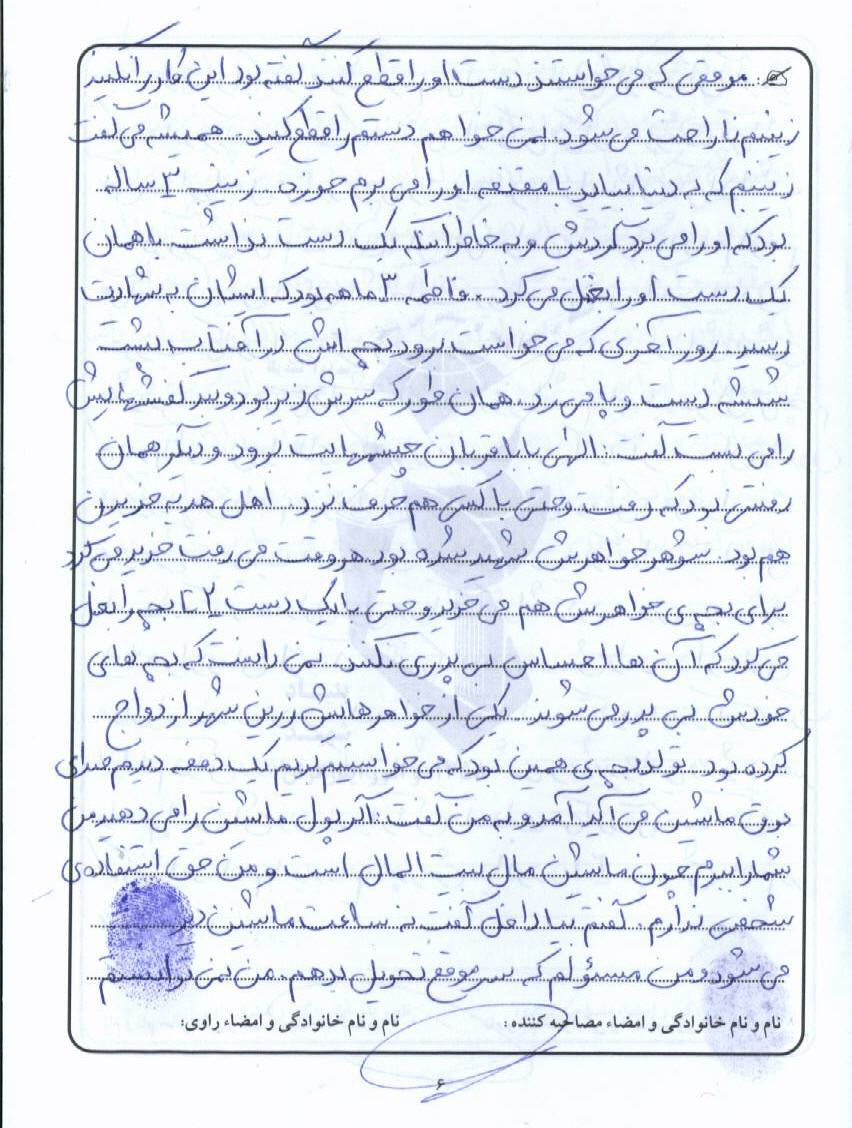 موقعی که می خواستند دست او را قطع کنند گفته بود این کار را نکنید
زینبم ناراحت می شود. نمی خواهم دستم را قطع کنید. همیشه می گفت
زینبم که به دنیا بیاید با مقنعه او را می برم حوزه. زینب ۳ ساله
بود که او را می برد گردش و به خاطر اینکه یک دست نداشت با همان
یک دست او را بغل می کرد. فاطمه ۳ ماهه بود که ایشان به شهادت
رسید. روز آخری که می خواست برود بچه اش در آفتاب پشت
شیشه دست و پا می زد. همان طور که سرش زیر بود و بند کفشهایش
را می بست گفت: الهی بابا قربان چشمهایت برود و دیگر همان
رفتنی بود که رفت و حتی با کسی هم حرف نزد. اهل هدیه خریدن
هم بود. شوهر خواهرش شهید شده بود. هر وقت می رفت خرید می کرد
برای بچه ی خواهرش هم می خرید و حتی با یک دست ۲ تا بچه را بغل
می کرد که آن ها احساس بی پدری نکنند. نمی دانست که بچه های
خودش بی پدر می شوند. یکی از خواهرهایش زرین شهر ازدواج
کرده بود. تولد بچه ی همین بود که می خواستیم برویم یک دفعه دیدم صدای
بوق ماشین می آید آمد و به من گفت: اگر پول ماشین را می دهید من
شما را ببرم چون ماشین مال بیت المال است و من حق استفاده ی
شخصی ندارم. گفتم بیا داخل گفت نه ساعت ماشین دیر
می شود و من مسئولم که سر موقع تحویل بدهم. من نمی توانستم
نام و نام خانوادگی و امضاء مصاحبه کننده: نام و نام خانوادگی و امضاء راوی:
۶